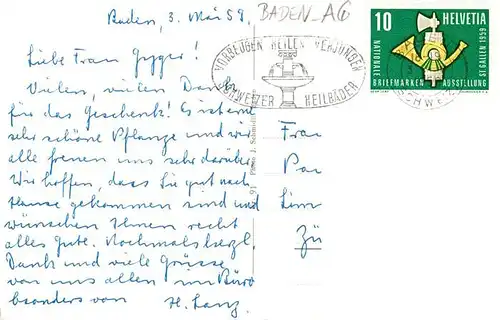 Baden, 3. Mai 59.
BADEN_AG
Liebe Frau Gyger!
Vielen, vielen Dank
für das Geschenk! Es ist eine
sehr schöne Pflanze und wir
alle freuen uns sehr darüber.
Wir hoffen, dass Sie gut nach
Hause gekommen sind und
wünschen Ihnen recht
alles Gute. Nochmals herzl.
Dank und viele Grüsse
von uns allen im Büro
besonders von H. Lanz.
VORBEUGEN HEILEN VERJÜNGEN
SCHWEIZER HEILBÄDER
10 HELVETIA
NATIONALE
BRIEFMARKEN AUSSTELLUNG
ST. GALLEN 1959
Frau
Zü
91 Photo J.